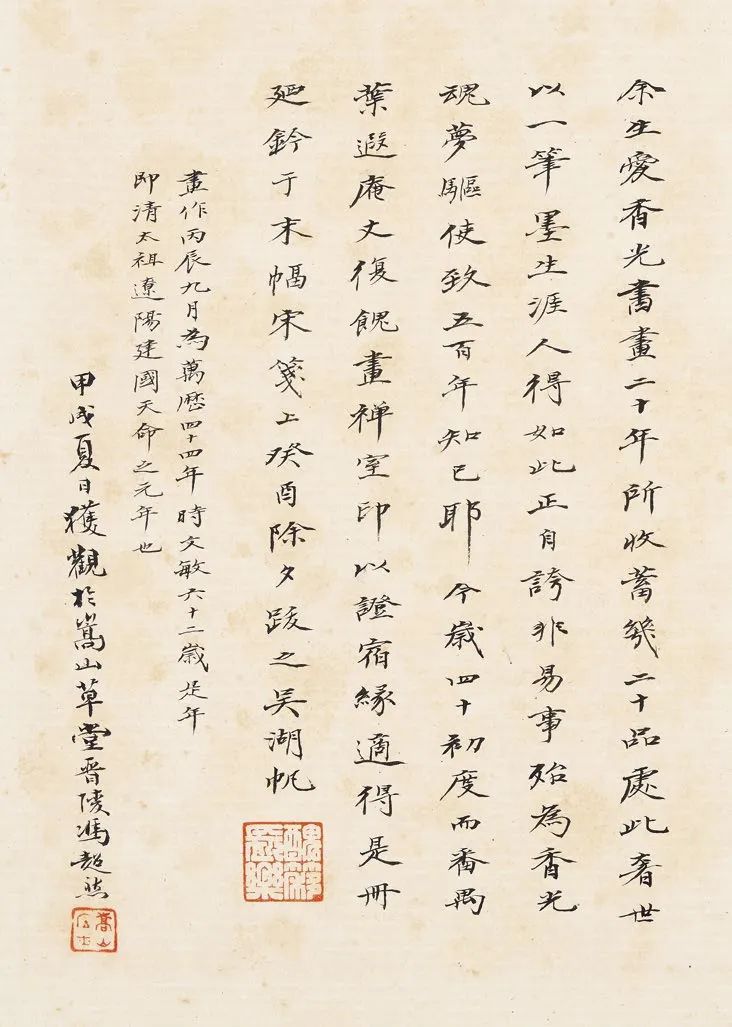 余生愛香光書畫二十年所收蓄幾二十品處此奢世
以一筆墨生涯人得如此正自誇非易事殆為香光
魂夢驅使致五百年知己耶今歲四十初度而番禺
葉遐庵丈復餽畫禅室印以證宿緣適得是冊
廼鈐于末幅宋箋上癸酉除夕跋之吴湖帆
畫作丙辰九月為萬歷四十四年時文敏六十二歲是年
即清太祖遼陽建國天命之元年也
甲戌夏日獲觀於嵩山草堂晋陵馮超然